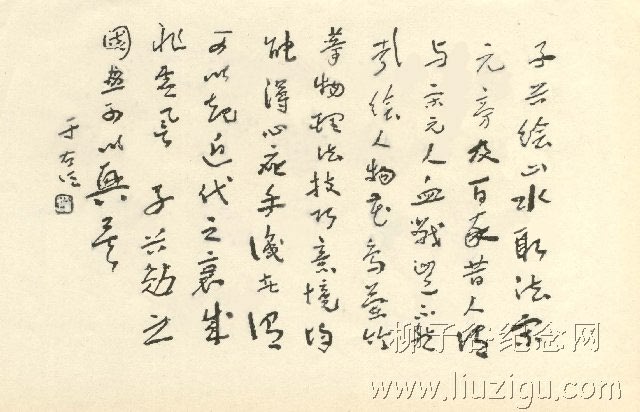 子谷绘山水取法宋
元旁及百家昔人谓
与宋元人血战
绘人物花鸟兰竹
物理法技巧意境均
能得心应手
可以起近代之衰
子谷勉之
国画可以兴矣
于右任
柳子谷纪念网
www.liuzigu.com